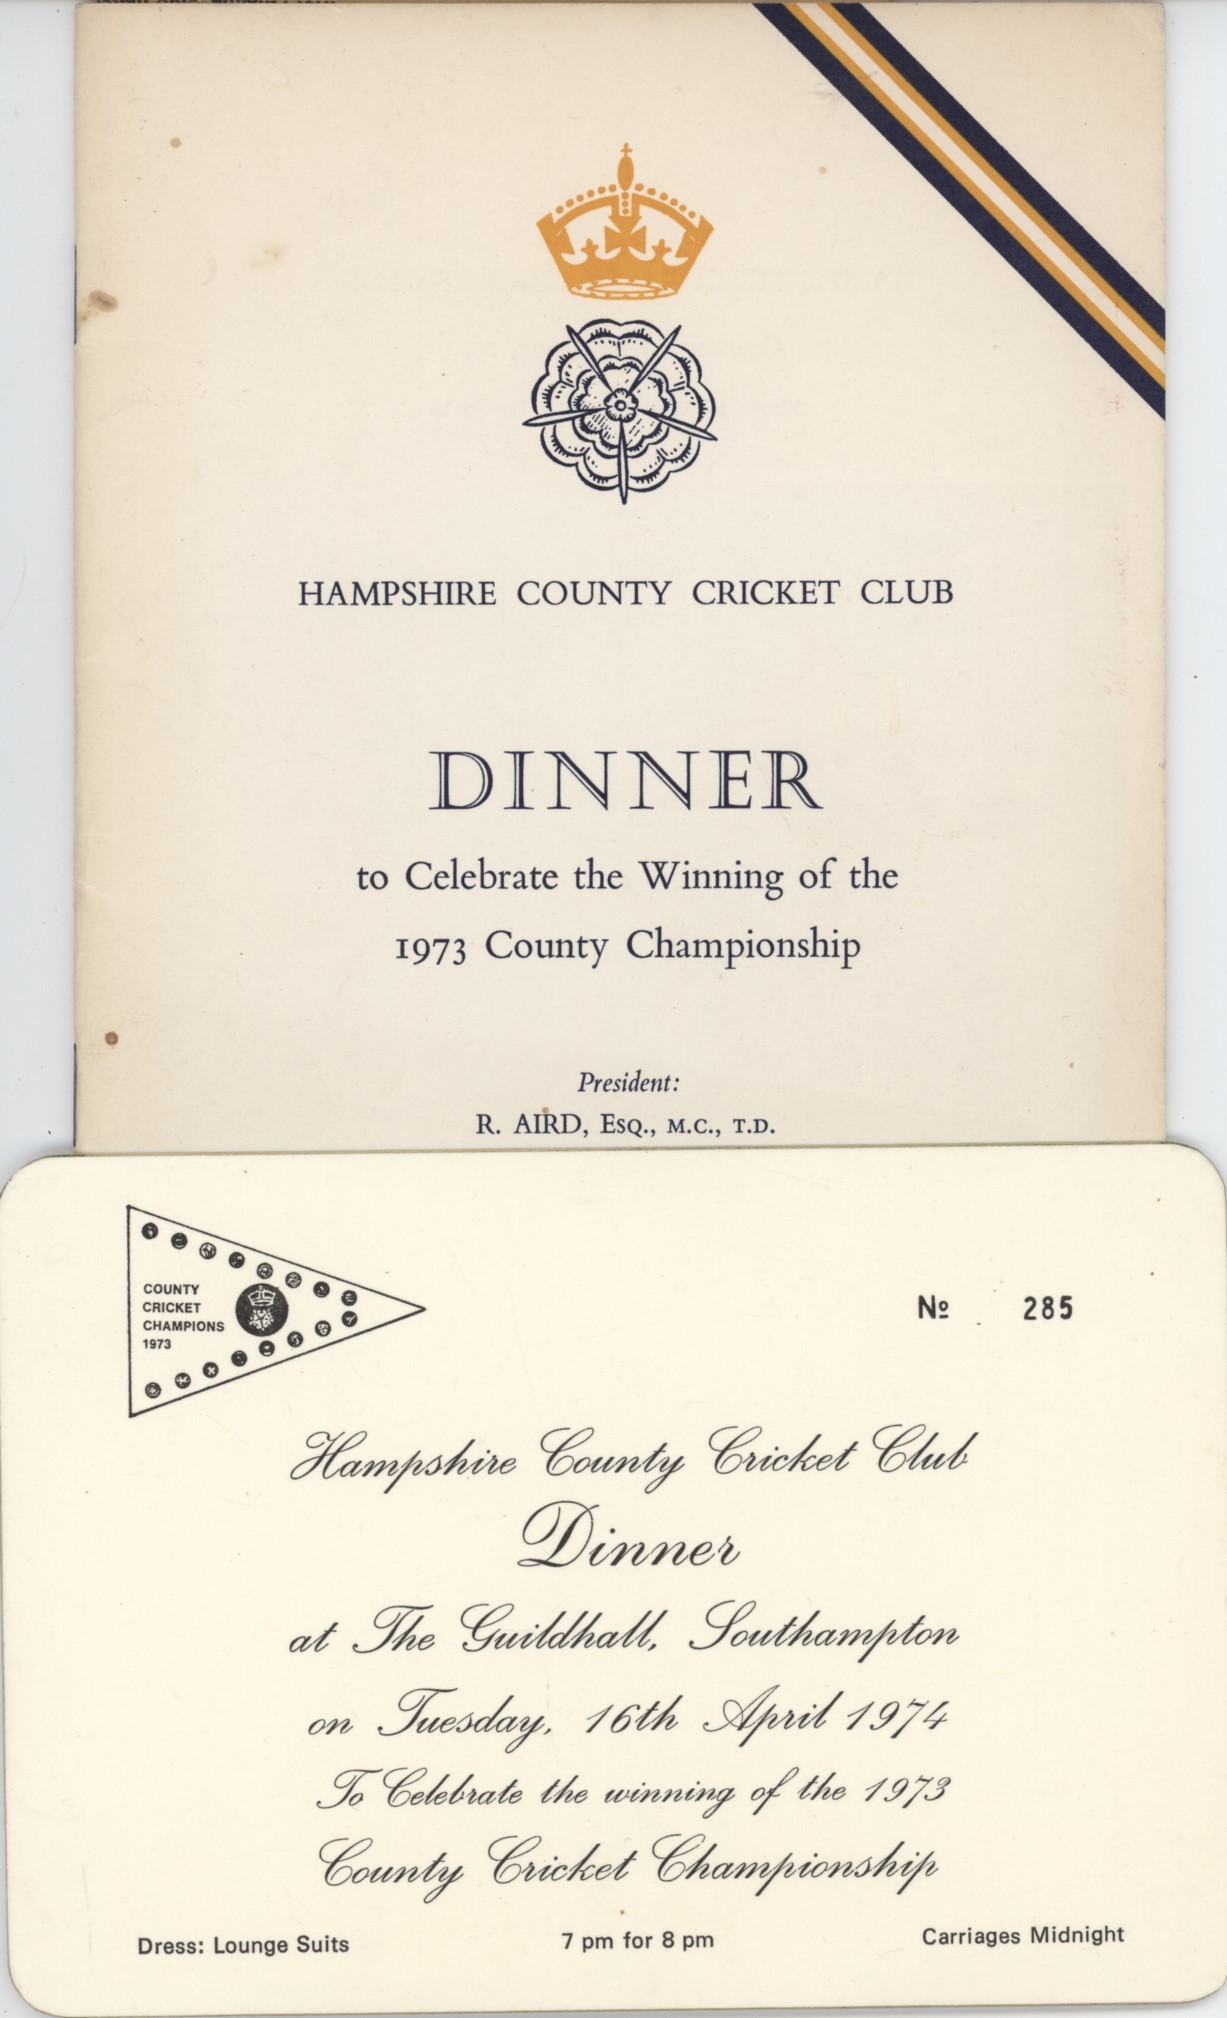 HAMPSHIRE COUNTY CRICKET CLUB
DINNER
to Celebrate the Winning of the
1973 County Championship
President:
R. AIRD, Esq., M.C., T.D.
COUNTY
CRICKET
CHAMPIONS
1973
No 285
Hampshire County Cricket Club
Dinner
at The Guildhall, Southampton
on Tuesday, 16th April 1974
To Celebrate the winning of the 1973
County Cricket Championship
Dress: Lounge Suits 7 pm for 8 pm Carriages Midnight